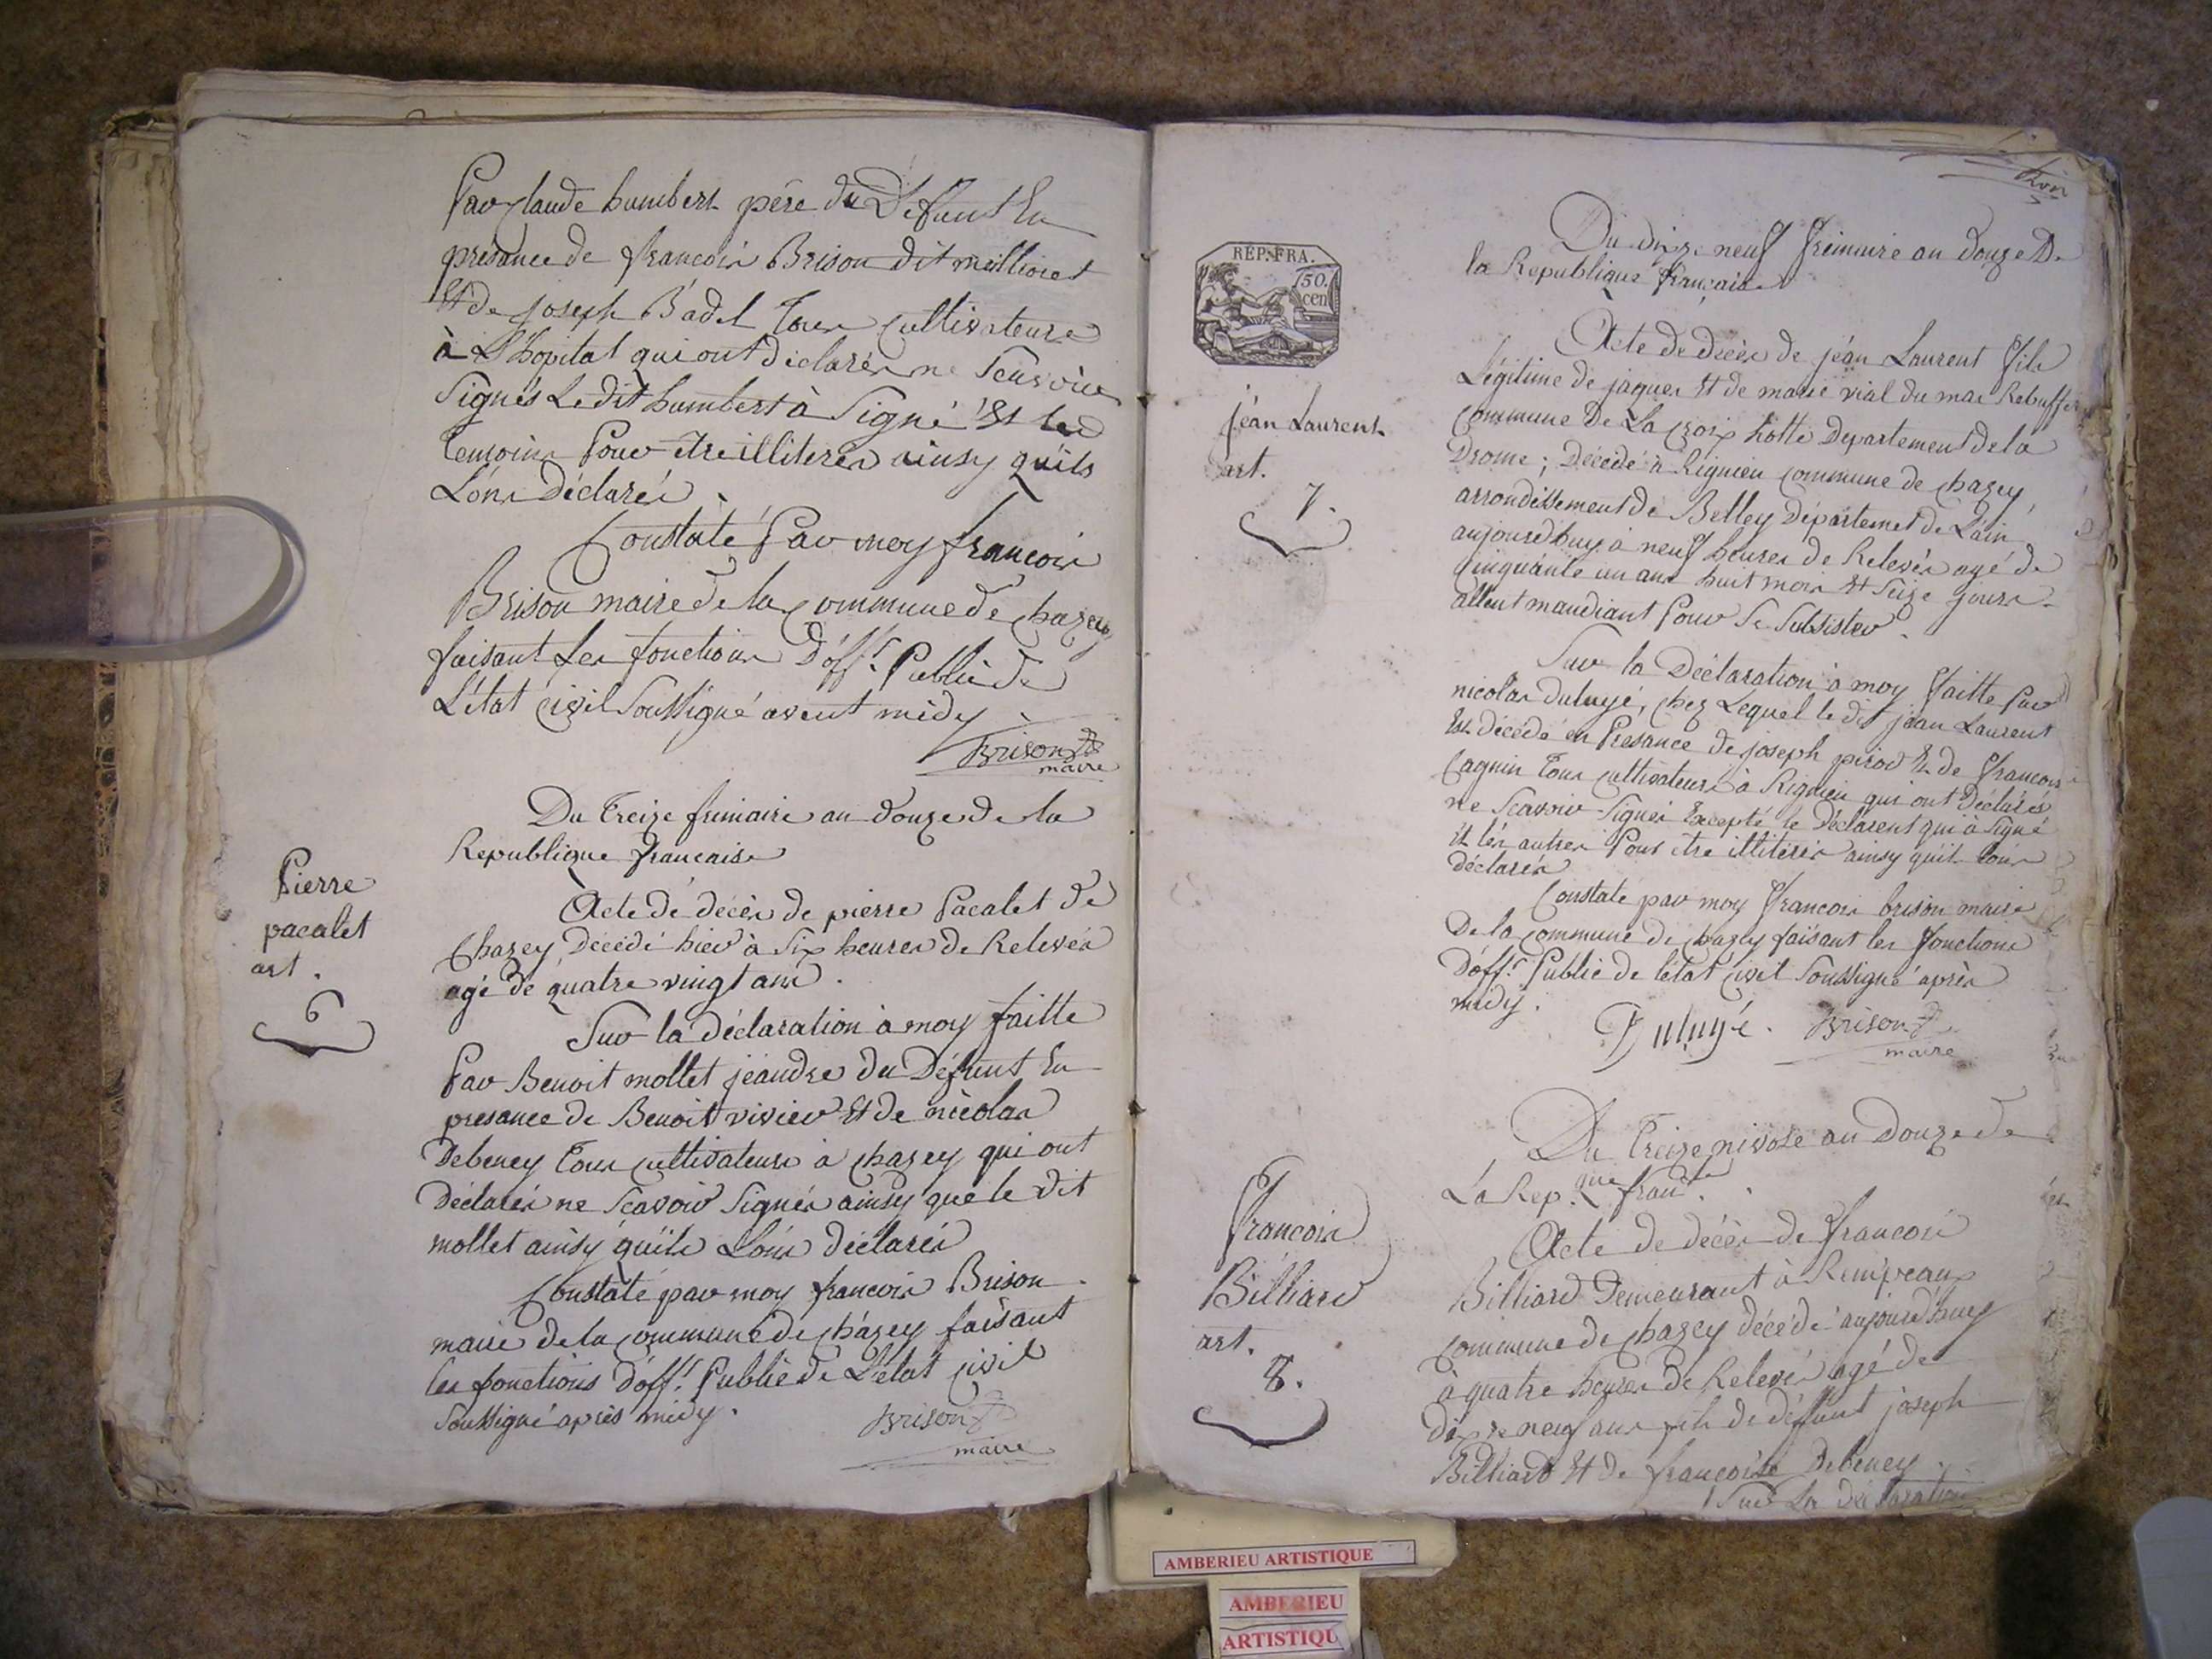 Par Claude humbert père du Défunt En
présance de françois Brison dit meilloret
Et de joseph Badel Tous Cultivateurs
à L'hopital qui ont déclarés ne Scavoir
Signés Le dit humbert à Signé Et les
temoins Pour être illiterés ainsy quils
L'ons Déclarés
Constaté Par moy françois
Brison maire de la Commune de Chazey
faisant Les fonctions D'off.r Public de
L'état Civil Soussigné avent midy
Brison
maire
Du Treize frimaire an Douze de la
Republique française
Pierre
pacalet
art.
6
Acte de décès de pierre Pacalet de
Chazey, Décédé hier à Six heures de Relevés
agé de quatre vingt ans.
Sur la déclaration à moy faitte
Par Benoit mollet jeandre du Défunt En
presance de Benoit vivier Et de nicolas
Debeney Tous Cultivateurs à Chazey qui ont
Déclarés ne Scavoir Signés ainsy que le dit
mollet ainsy quils L'ons déclarés
Constaté par moy françois Brison
maire de la Commune de Chazey faisant
les fonctions d'off.r Public de L'état Civil
Soussigné après midy.
Brison
maire
trois
REP. FRA.
50.
cen
Du dix neuf frimaire an douze De
la Republique française
jéan Laurent
art.
7.
Acte de décès de jéan Laurent fils
Légitime de jaques Et de marie vial du mas Rebuffer
Commune De La Croix hotte Departement de la
Drome; Décédé à Rignieu commune de Chazey,
arrondissement de Belley Département de L'ain
aujourdhuy à neuf heures de Relevés agé de
Cinquante un ans huit mois Et Seize jours
allent mandiant Pour Se Subsister.
Sur la Déclaration à moy faitte Par
nicolas duluyé, chez Lequel le dit jéan Laurent
Est décédé en Presance de joseph pirod Et de françois
Caguin Tous cultivateurs à Rignieu qui ont Déclarés
ne Scavoir Signés Excepté le Déclarent qui à Signé
Et lés autres Pour être illitérés ainsy quil lons
déclarés
Constaté par moy françois brison maire
De la Commune de Chazey faisant les fonctions
D'off.r Public de l'état Civil Soussigné après
midy.
Duluyé. Brison
maire
Du Treize nivose an Douze de
La Rep.que fran.se
François
Billiard
art.
8.
Acte de décès de françois
Billiard Demeurant à Rempeaux
Commune de Chazey décédé aujourd'huy
à quatre heures de Relevés agé de
dix neuf ans fils de défunt joseph
Billiard Et de françoise Debeney.
Sur La déclaration
AMBERIEU ARTISTIQUE
AMBERIEU
ARTISTIQU